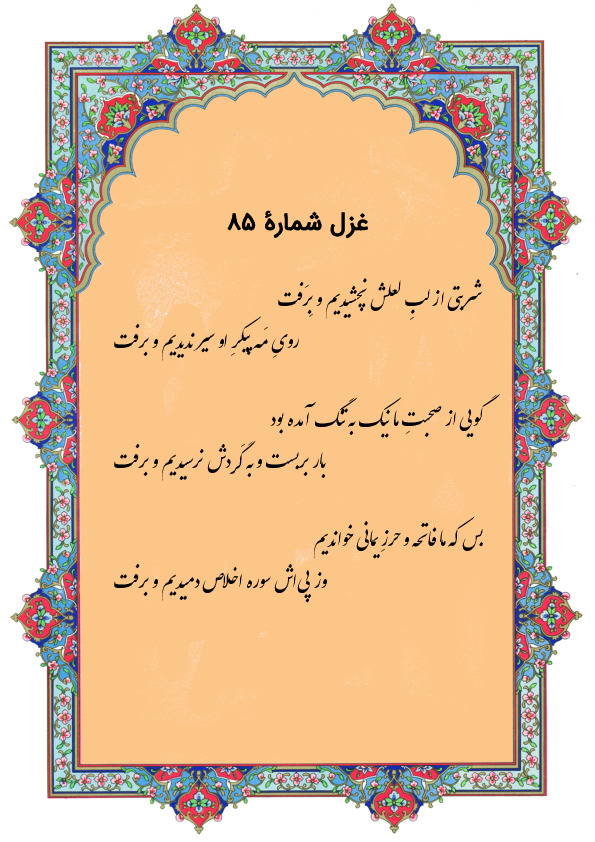 غزل شمارهٔ ۸۵
شربتی از لبِ لعلش نچشیدیم و بِرَفت
رویِ مَه پیکرِ او سیر ندیدیم و برفت
گویی از صحبتِ ما نیک به تنگ آمده بود
بار بربست و به گَردش نرسیدیم و برفت
بس که ما فاتحه و حرزِ یمانی خواندیم
وز پی‌اش سوره اخلاص دمیدیم و برفت